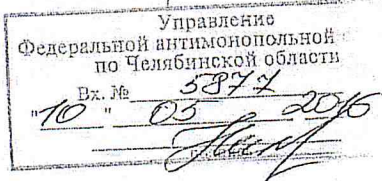 Управление
Федеральной антимонопольной
по Челябинской области
Вх. № 5877
"10" 05 2016